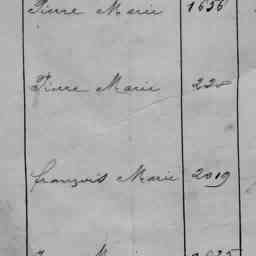 Pierre Marie 1656
Pierre Marie 220
François Marie 2019